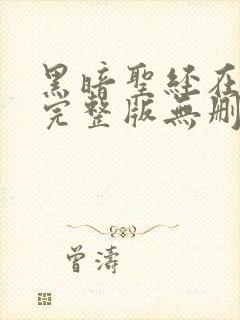 黑暗聖經在
完整版無刪
曾濤